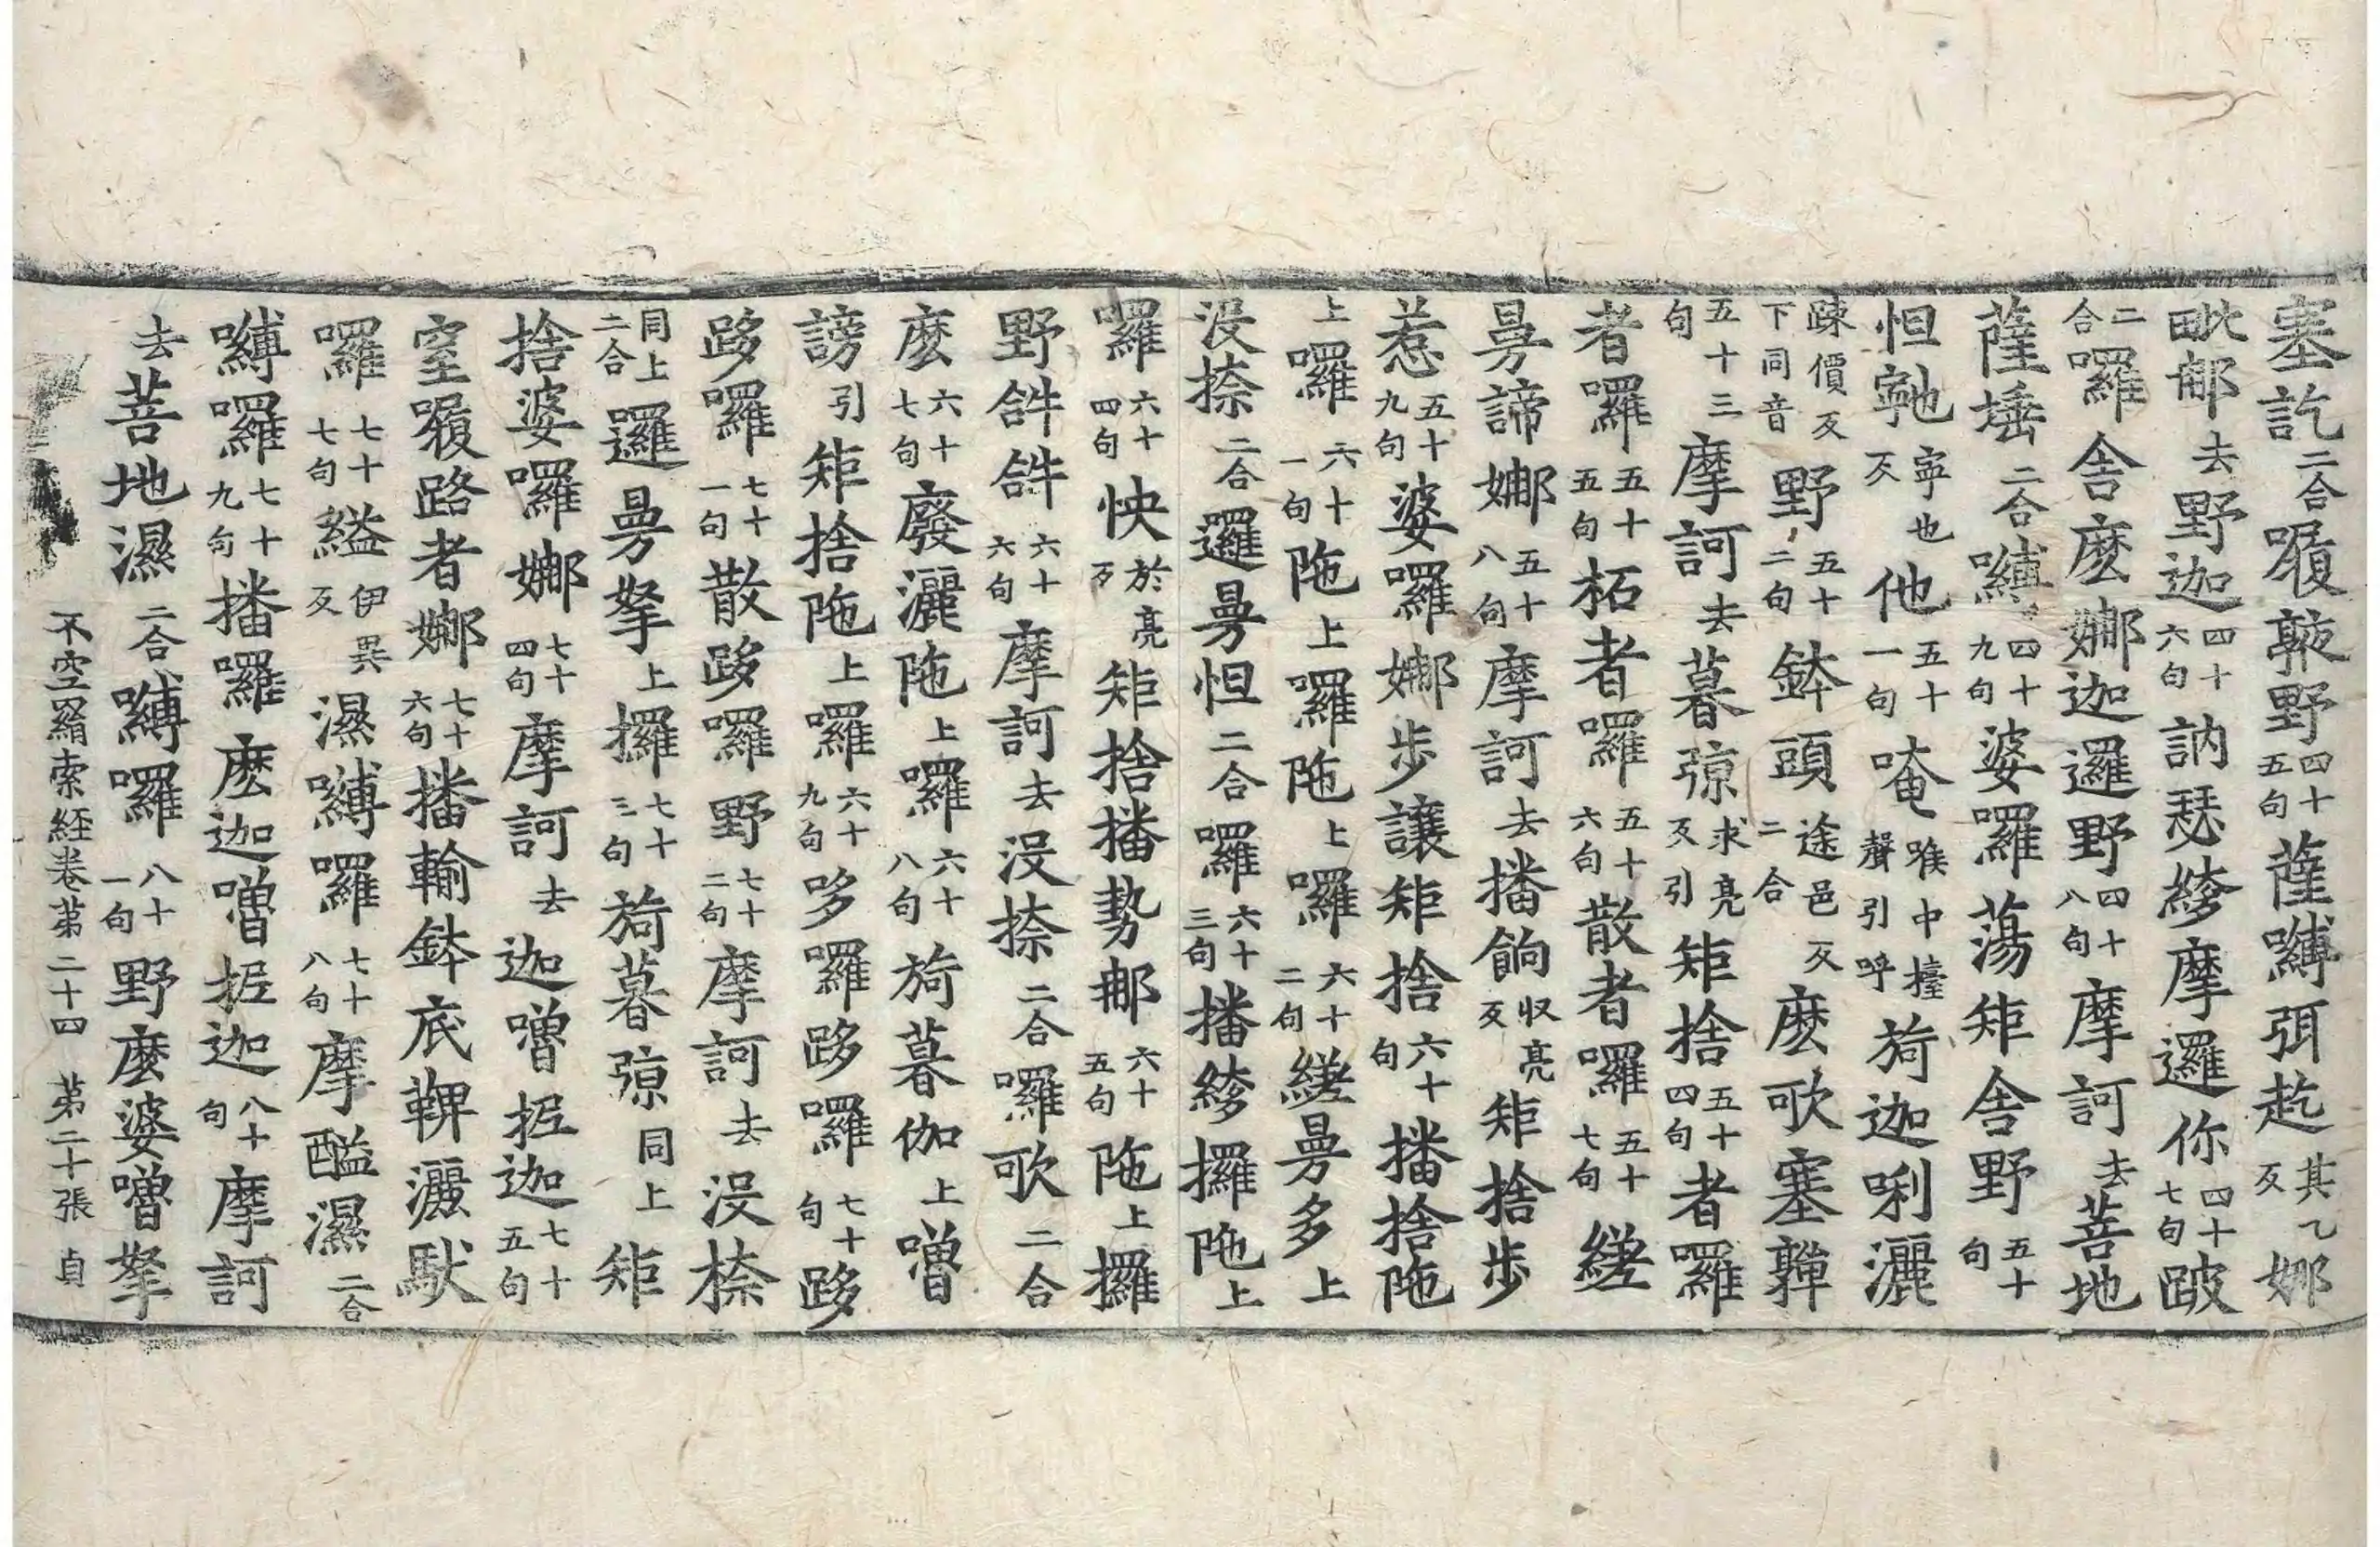 塞訖二合㘑䩭野四十五句薩嚩弭訖其乙反娜
毗郍去野迦四十六句訥瑟縿摩邏你四十七句跛
二合囉舍麼娜迦邏野四十八句摩訶去菩地
薩埵二合嚩四十九句婆囉蕩矩舍野五十句
怛㝹寧也反他五十一句唵喉中擡聲引呼䓫迦唎灑
踈價反下同音野五十二句鉢頭途邑反二合麽歌塞亸
五十三句摩訶去暮弶求亮反引矩捨五十四句者囉
者囉五十五句柘者囉五十六句散者囉五十七句縒
曼諦娜五十八句摩訶去播餉收亮反矩捨步
惹五十九句婆囉娜步讓矩捨六十句播捨陁
上囉六十一句陁上囉陁上囉六十二句縒曼多上
没捺二合邏曼怛二合囉六十三句播縿攞陁上
囉六十四句怏於亮反矩捨播勢郍六十五句陁上攞
野𤙖𤙖六十六句摩訶去没捺二合囉歌二合
麽六十七句廢灑陁上囉六十八句䓫暮伽上噌
謗引矩捨陁上囉六十九句哆囉跢囉七十句跢
跢囉七十一句散跢囉野七十二句摩訶去没捺
同上二合邏曼拏上攞七十三句䓫暮弶同上矩
捨婆囉娜七十四句摩訶去迦噌抳迦七十五句
窒㘑路者娜七十六句播輸鉢底鞞灑馱
囉七十七句縊伊異反濕嚩囉七十八句摩醯濕二合
嚩囉七十九句播囉麽迦噌抳迦八十句摩訶
去菩地濕二合嚩囉八十一句野麽婆噌拏
不空羂索經卷第二十四 第二十張 貞